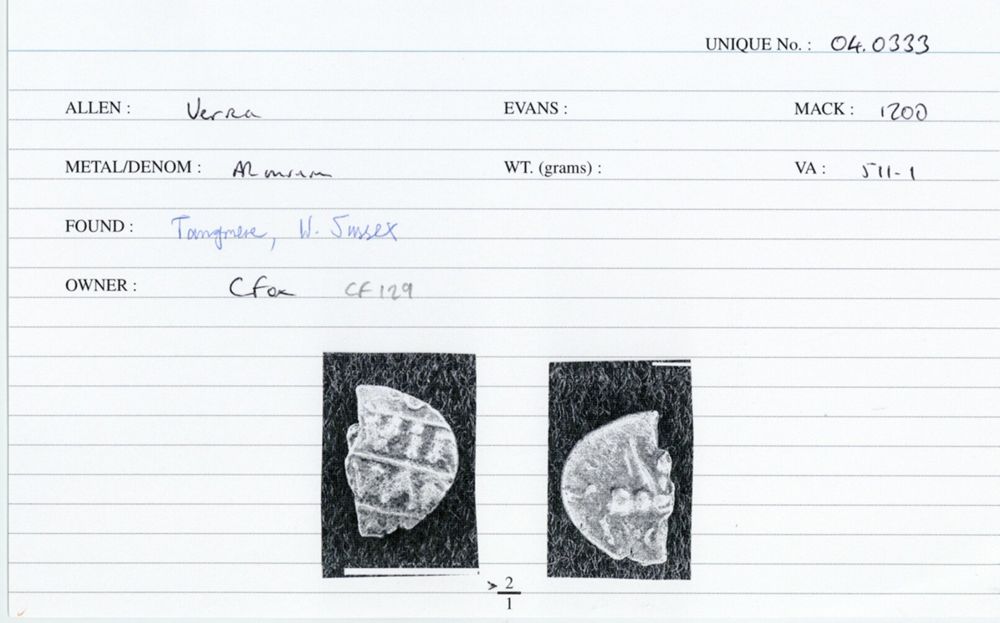 UNIQUE No. : 04.0333
ALLEN : Verica EVANS : MACK : 120D
METAL/DENOM : AR minim WT. (grams) : VA : 511-1
FOUND : Tangmere, W. Sussex
OWNER : C Fox CF129
> 2
1